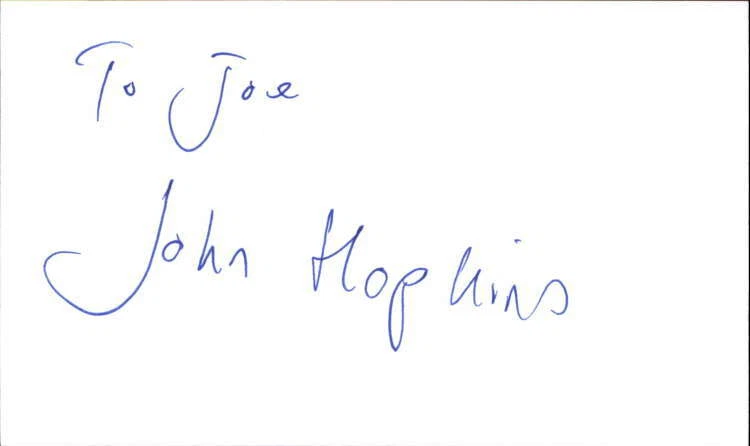 To Joe
John Hopkins